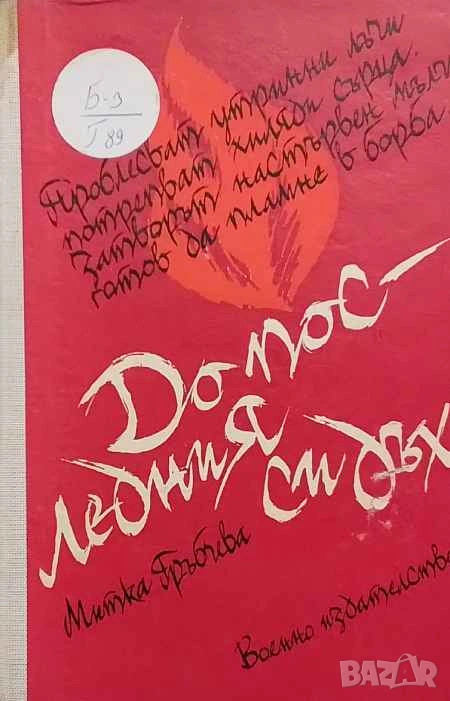 Б-3
Г 89
Проблесват утринни лъчи
потрепват хиляди сърца.
Затворът настървен мълчи
готов да пламне в борба
До пос-
ледния
си дъх
Митка Гръбчева
Военно издателство
BAZAR